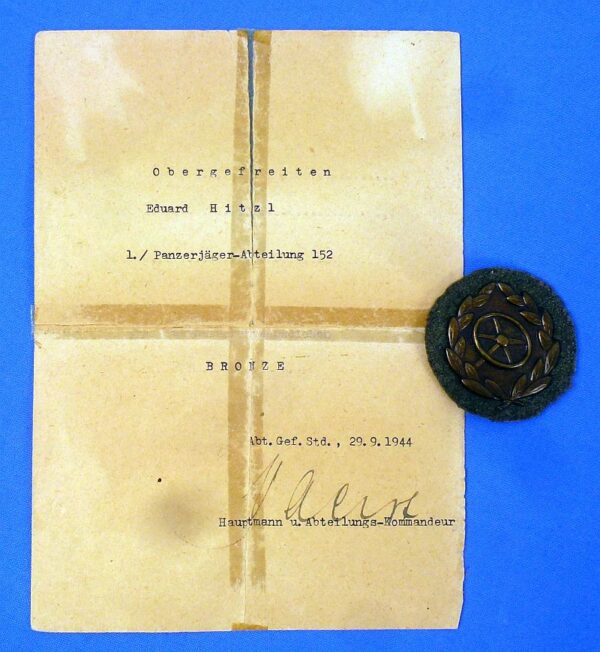 Obergefreiten
Eduard Hitzl
1./ Panzerjäger-Abteilung 152
BRONZE
Abt. Gef. Std., 29.9.1944
Hauptmann u. Abteilungs-Kommandeur